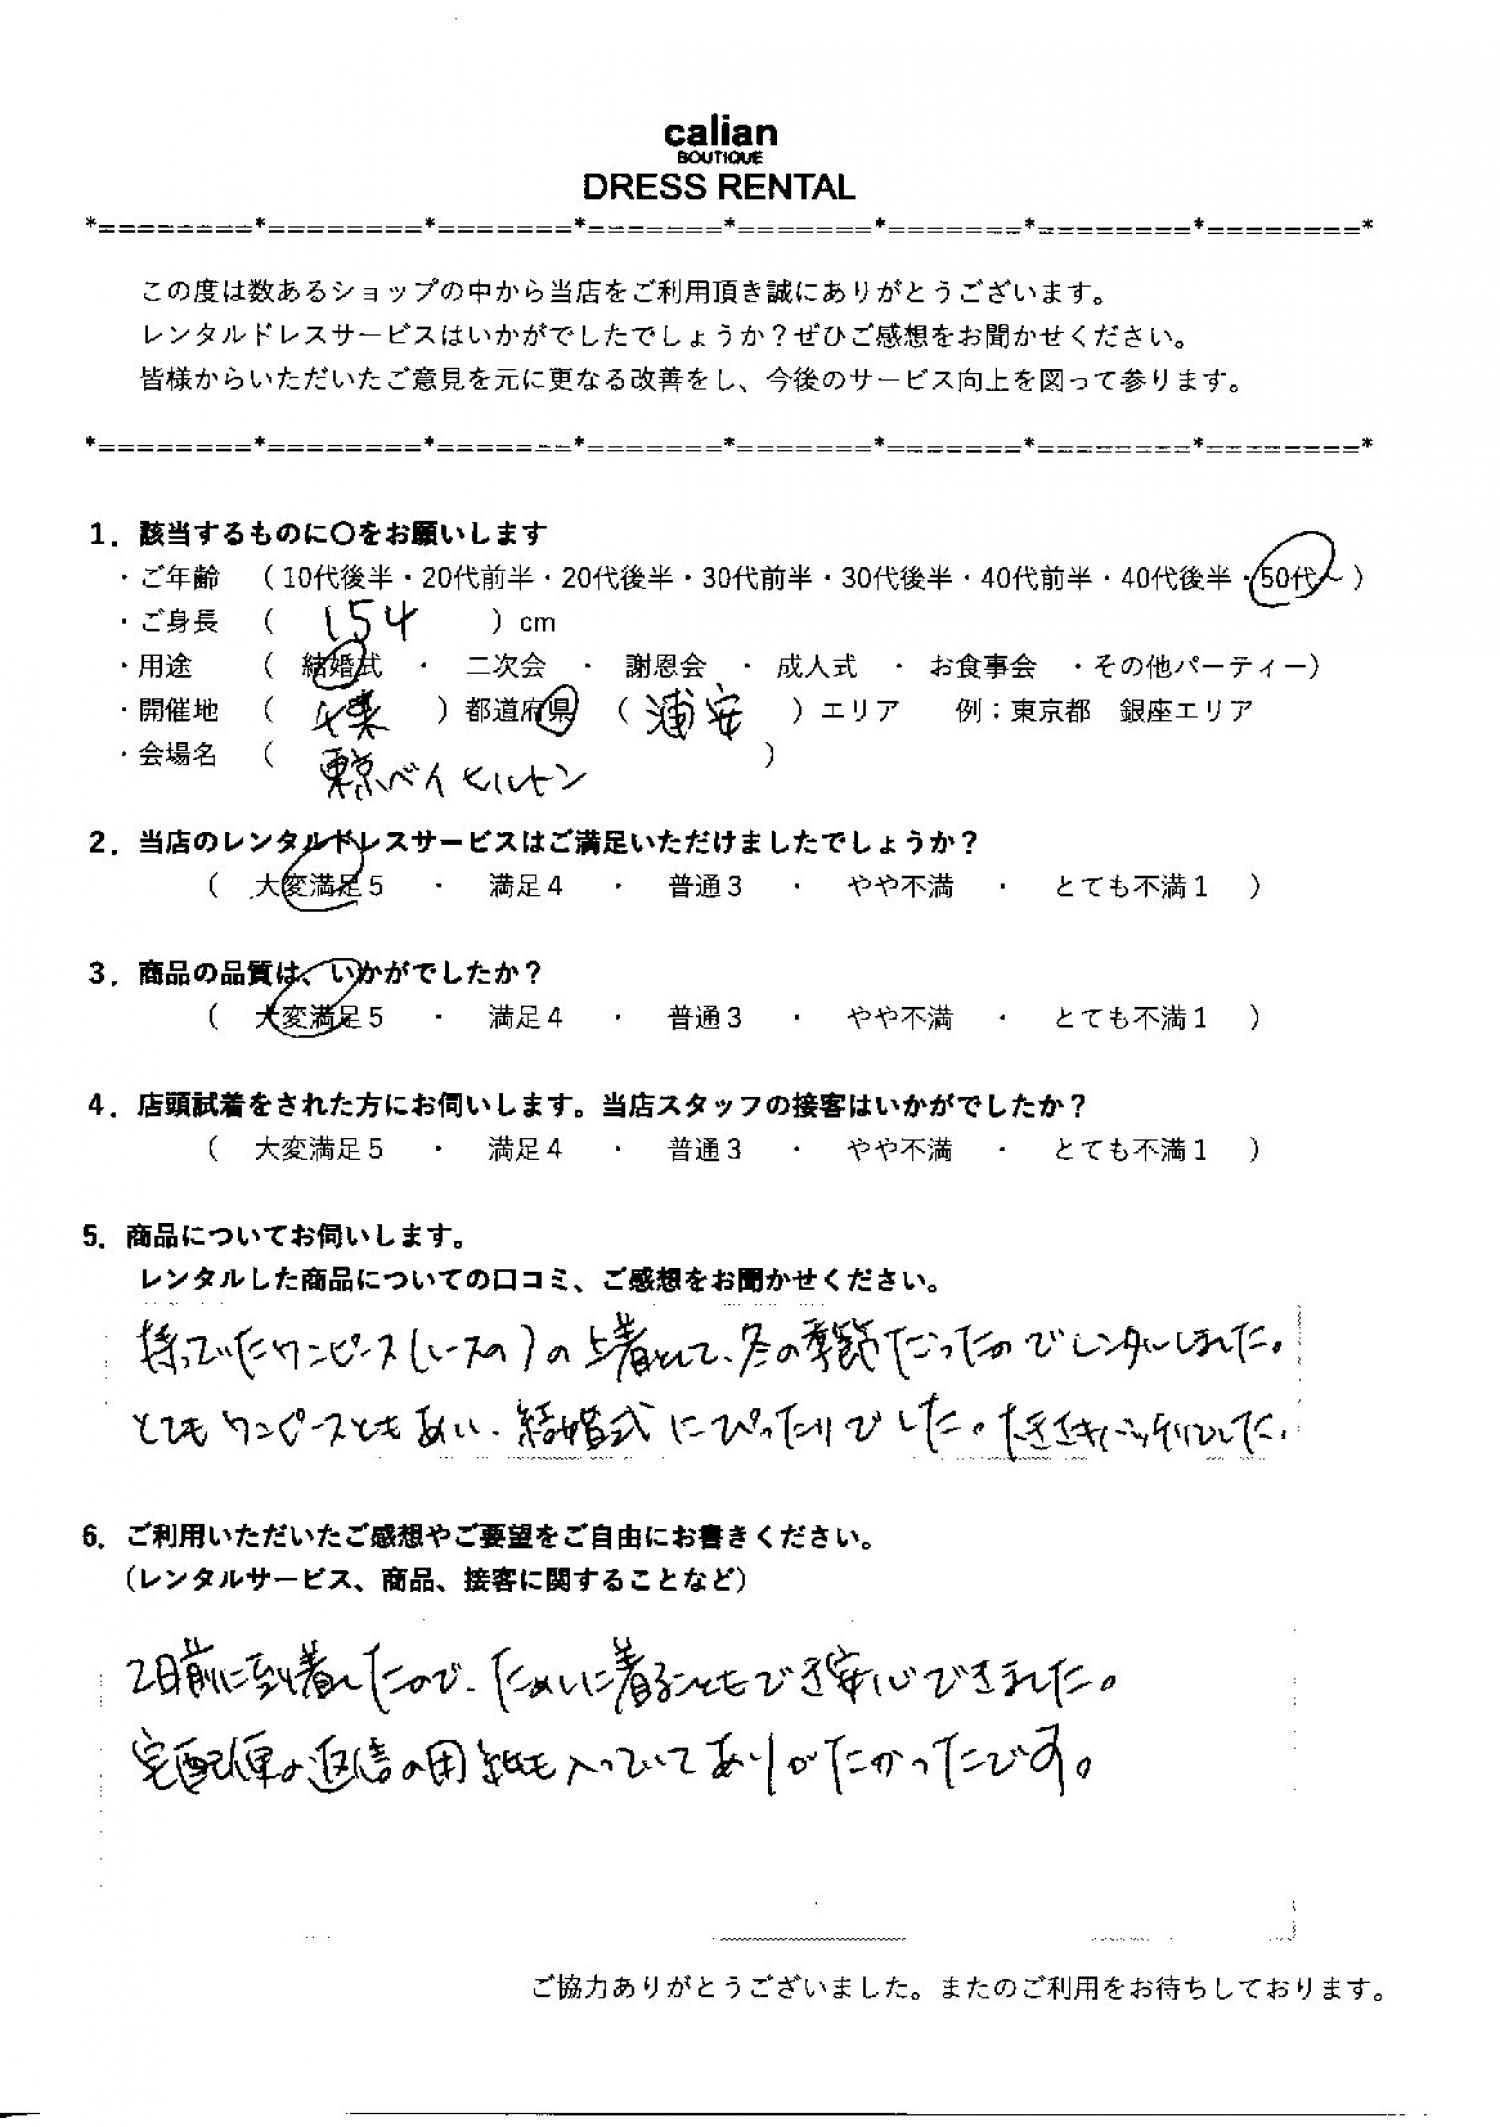 calian
BOUTIQUE
DRESS RENTAL
*========*========*=======*=======*=======*=======*========*========*
この度は数あるショップの中から当店をご利用頂き誠にありがとうございます。
レンタルドレスサービスはいかがでしたでしょうか？ぜひご感想をお聞かせください。
皆様からいただいたご意見を元に更なる改善をし、今後のサービス向上を図って参ります。
*========*========*=======*=======*=======*=======*========*========*
1．該当するものに〇をお願いします
・ご年齢 （10代後半・20代前半・20代後半・30代前半・30代後半・40代前半・40代後半・50代〜）
・ご身長 （ 154 ）cm
・用途 （ 結婚式 ・ 二次会 ・ 謝恩会 ・ 成人式 ・ お食事会 ・その他パーティー）
・開催地 （ 千葉 ）都道府県 （ 浦安 ）エリア 例：東京都 銀座エリア
・会場名 （ 東京ベイヒルトン ）
2．当店のレンタルドレスサービスはご満足いただけましたでしょうか？
（ 大変満足5 ・ 満足4 ・ 普通3 ・ やや不満 ・ とても不満1 ）
3．商品の品質は、いかがでしたか？
（ 大変満足5 ・ 満足4 ・ 普通3 ・ やや不満 ・ とても不満1 ）
4．店頭試着をされた方にお伺いします。当店スタッフの接客はいかがでしたか？
（ 大変満足5 ・ 満足4 ・ 普通3 ・ やや不満 ・ とても不満1 ）
5．商品についてお伺いします。
レンタルした商品についての口コミ、ご感想をお聞かせください。
持っていたワンピース(レースの)の上着として、冬の季節だったのでレンタルしました。
とてもワンピースともあい、結婚式にぴったりでした。大きさもバッチリでした。
6．ご利用いただいたご感想やご要望をご自由にお書きください。
（レンタルサービス、商品、接客に関することなど）
2日前に到着したので、ためしに着ることもでき安心できました。
宅配便の返信の用紙も入っていてありがたかったです。
ご協力ありがとうございました。またのご利用をお待ちしております。